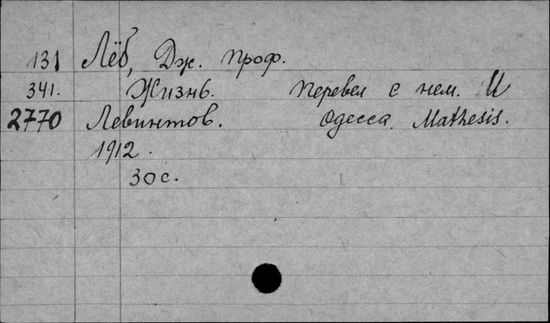 131 Лёб, Дж. проф.
341. Жизнь. Перевел с нем. И
2770 Левинтов. Одесса. Mathesis.
1912.
30 с.